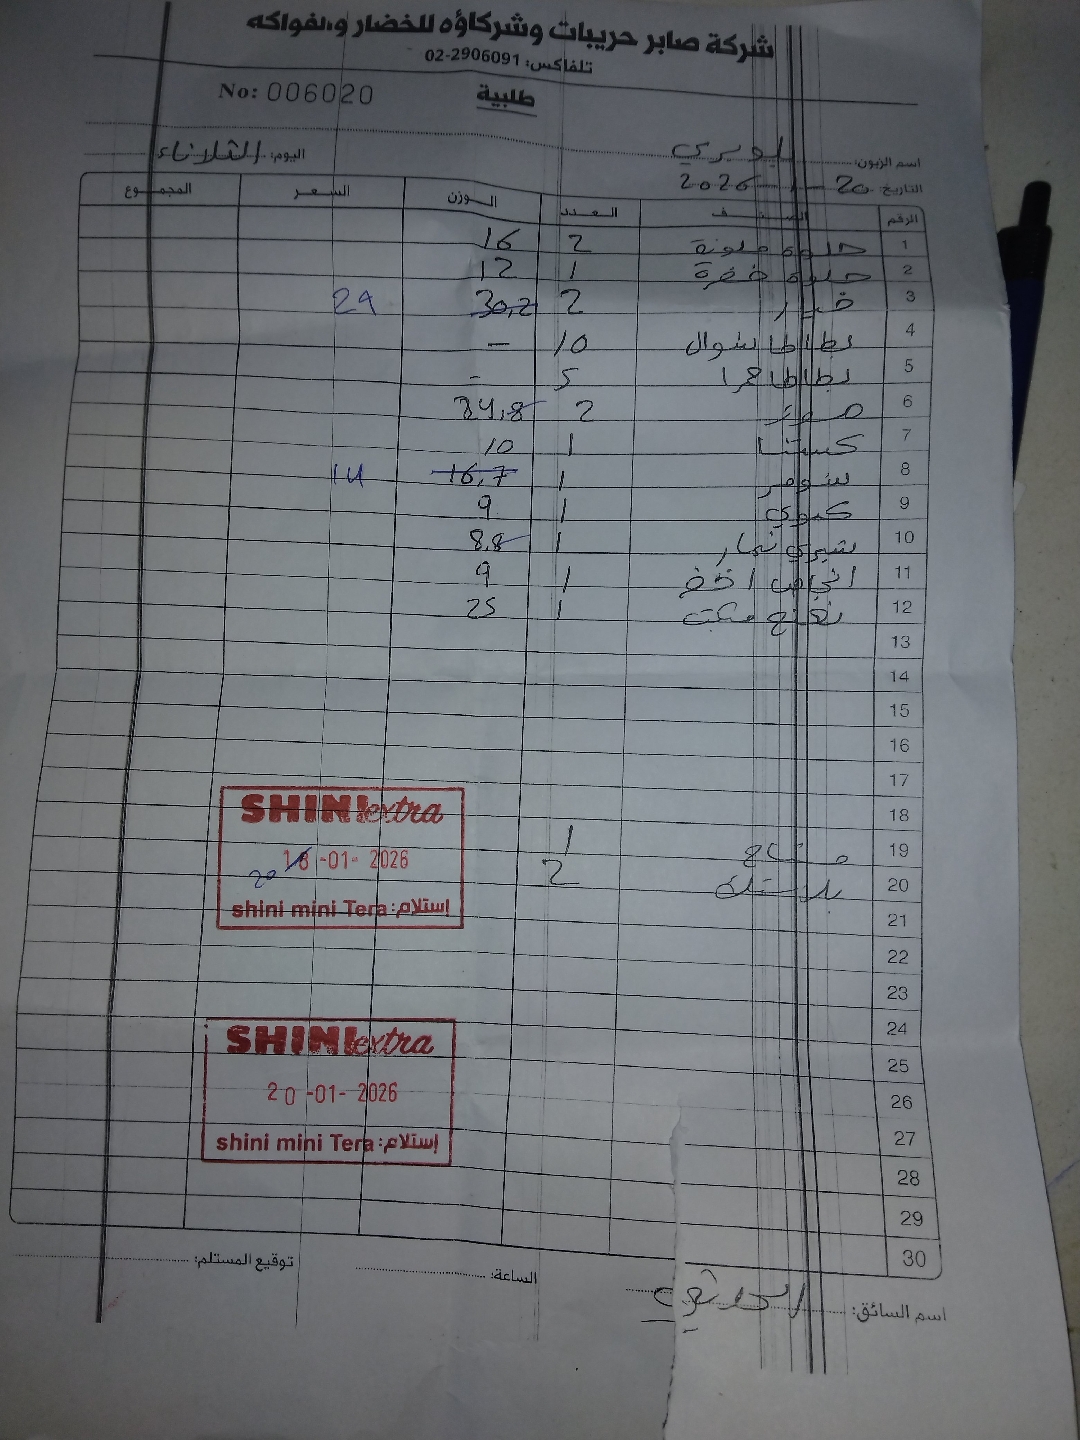 شركة صابر حريبات وشركاؤه للخضار والفواكه
تلفاكس: 02-2906091
طلبية
No: 006020
اسم الزبون:
اليوم: الثلاثاء
التاريخ: 20 - 1 - 2026
الرقم الصنف العدد الوزن السعر المجموع
1 حلوة ملونة 2 16
2 حلوة خضرة 1 12
3 خيار 2 30,2 29
4 بطاطا شوال 10 -
5 بطاطا حمرا 5 -
6 موز 2 34,8
7 كستنا 1 10
8 1 16,7 14
9 كيوي 1 9
10 شيري 1 8,8
11 انجاص اخضر 1 9
12 نعنع 1 25
13
14
15
16
17
18
19 1
20 2
21
22
23
24
25
26
27
28
29
30
SHINI extra
20 18 -01- 2026
shini mini Tera إستلام:
SHINI extra
20 -01- 2026
shini mini Tera إستلام:
اسم السائق:
الساعة:
توقيع المستلم: